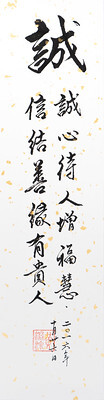 誠
誠心待人增福慧
信結善緣有貴人
二〇一六年